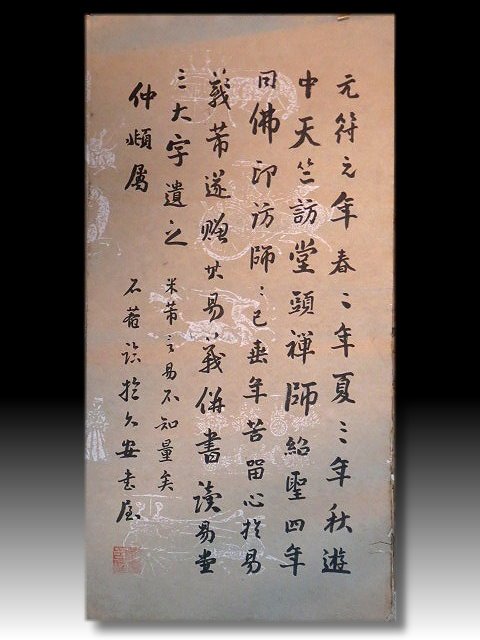 元符元年春二年夏三年秋遊
中天竺訪堂頭禪師紹聖四年
同佛印訪師師已垂年苦留心於易
義芾遂贈其易義併書讀易堂
三大字遺之 米芾言易不知量矣
仲頫屬 於久安書屋